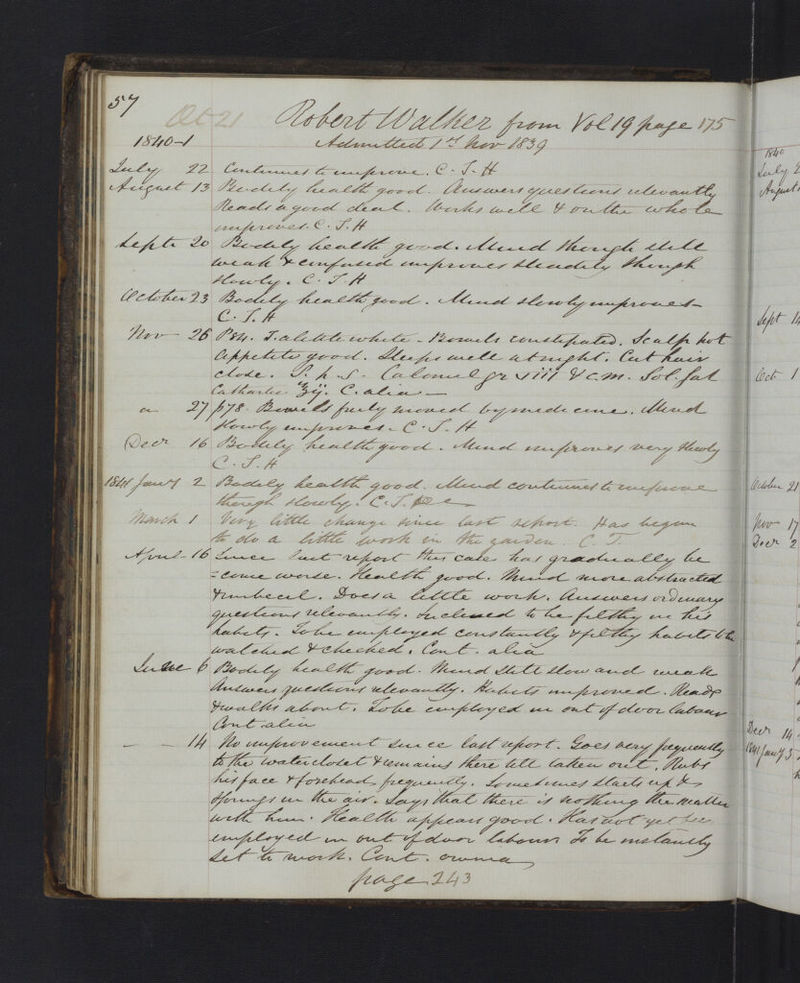 57
Oct 21 Robert Walker from Vol 19 page 175
Admitted 1st Nov 1839
1840-1
July 22 Continues to improve. C. T. H
August 13 Bodily health good. Answers questions relevantly
Reads a good deal. Works well & on the whole
improves. C. T. H
Septr 20 Bodily health good. Mind though still
weak & confused improves steadily though
slowly. C. T. H
October 23 Bodily health good. Mind slowly improves
C. T. H
Nov 26 P84. T. a little white. Bowels constipated. Scalp hot
Appetite good. Sleeps well at night. Cut hair
close. Calomel gr c. m. Sol.
Cathartic ʒij. C. alia
" 27 p78. Bowels freely moved by medicine. Mind
slowly improves. C. T. H
Decr 16 Bodily health good. Mind improves very slowly
C. T. H
1841 Jany 2 Bodily health good. Mind continues to improve
though slowly. C. T.
March 1 Very little change since last report. Has begun
to do a little work in the garden. C. T.
April 16 Since last report this case has gradually be
=come worse. Health good. Mind more abstracted
& imbecil. Does a little work. Answers ordinary
questions relevantly. Inclined to be filthy in his
habits. To be employed constantly & filthy habits to be
watched & checked. Cont. alia
June 6 Bodily health good. Mind still slow and weak
Answers questions relevantly. Habits improved. Reads
& walks about. To be employed in out of door labour
Cont alia
— — 14 No improvement since last report. Goes very frequently
to the water closet & remains there till taken out. Rubs
his face & forehead frequently. Sometimes starts up &
springs in the air. Says that there is nothing the matter
with him. Health appears good. Has not yet been
employed in out of door labour To be instantly
set to work. Cont. omnia
page 243
1840
July 2
August
Sept 1
Oct 1
October 21
Nov 17
Decr 2
Decr 14
1841 Jany 5